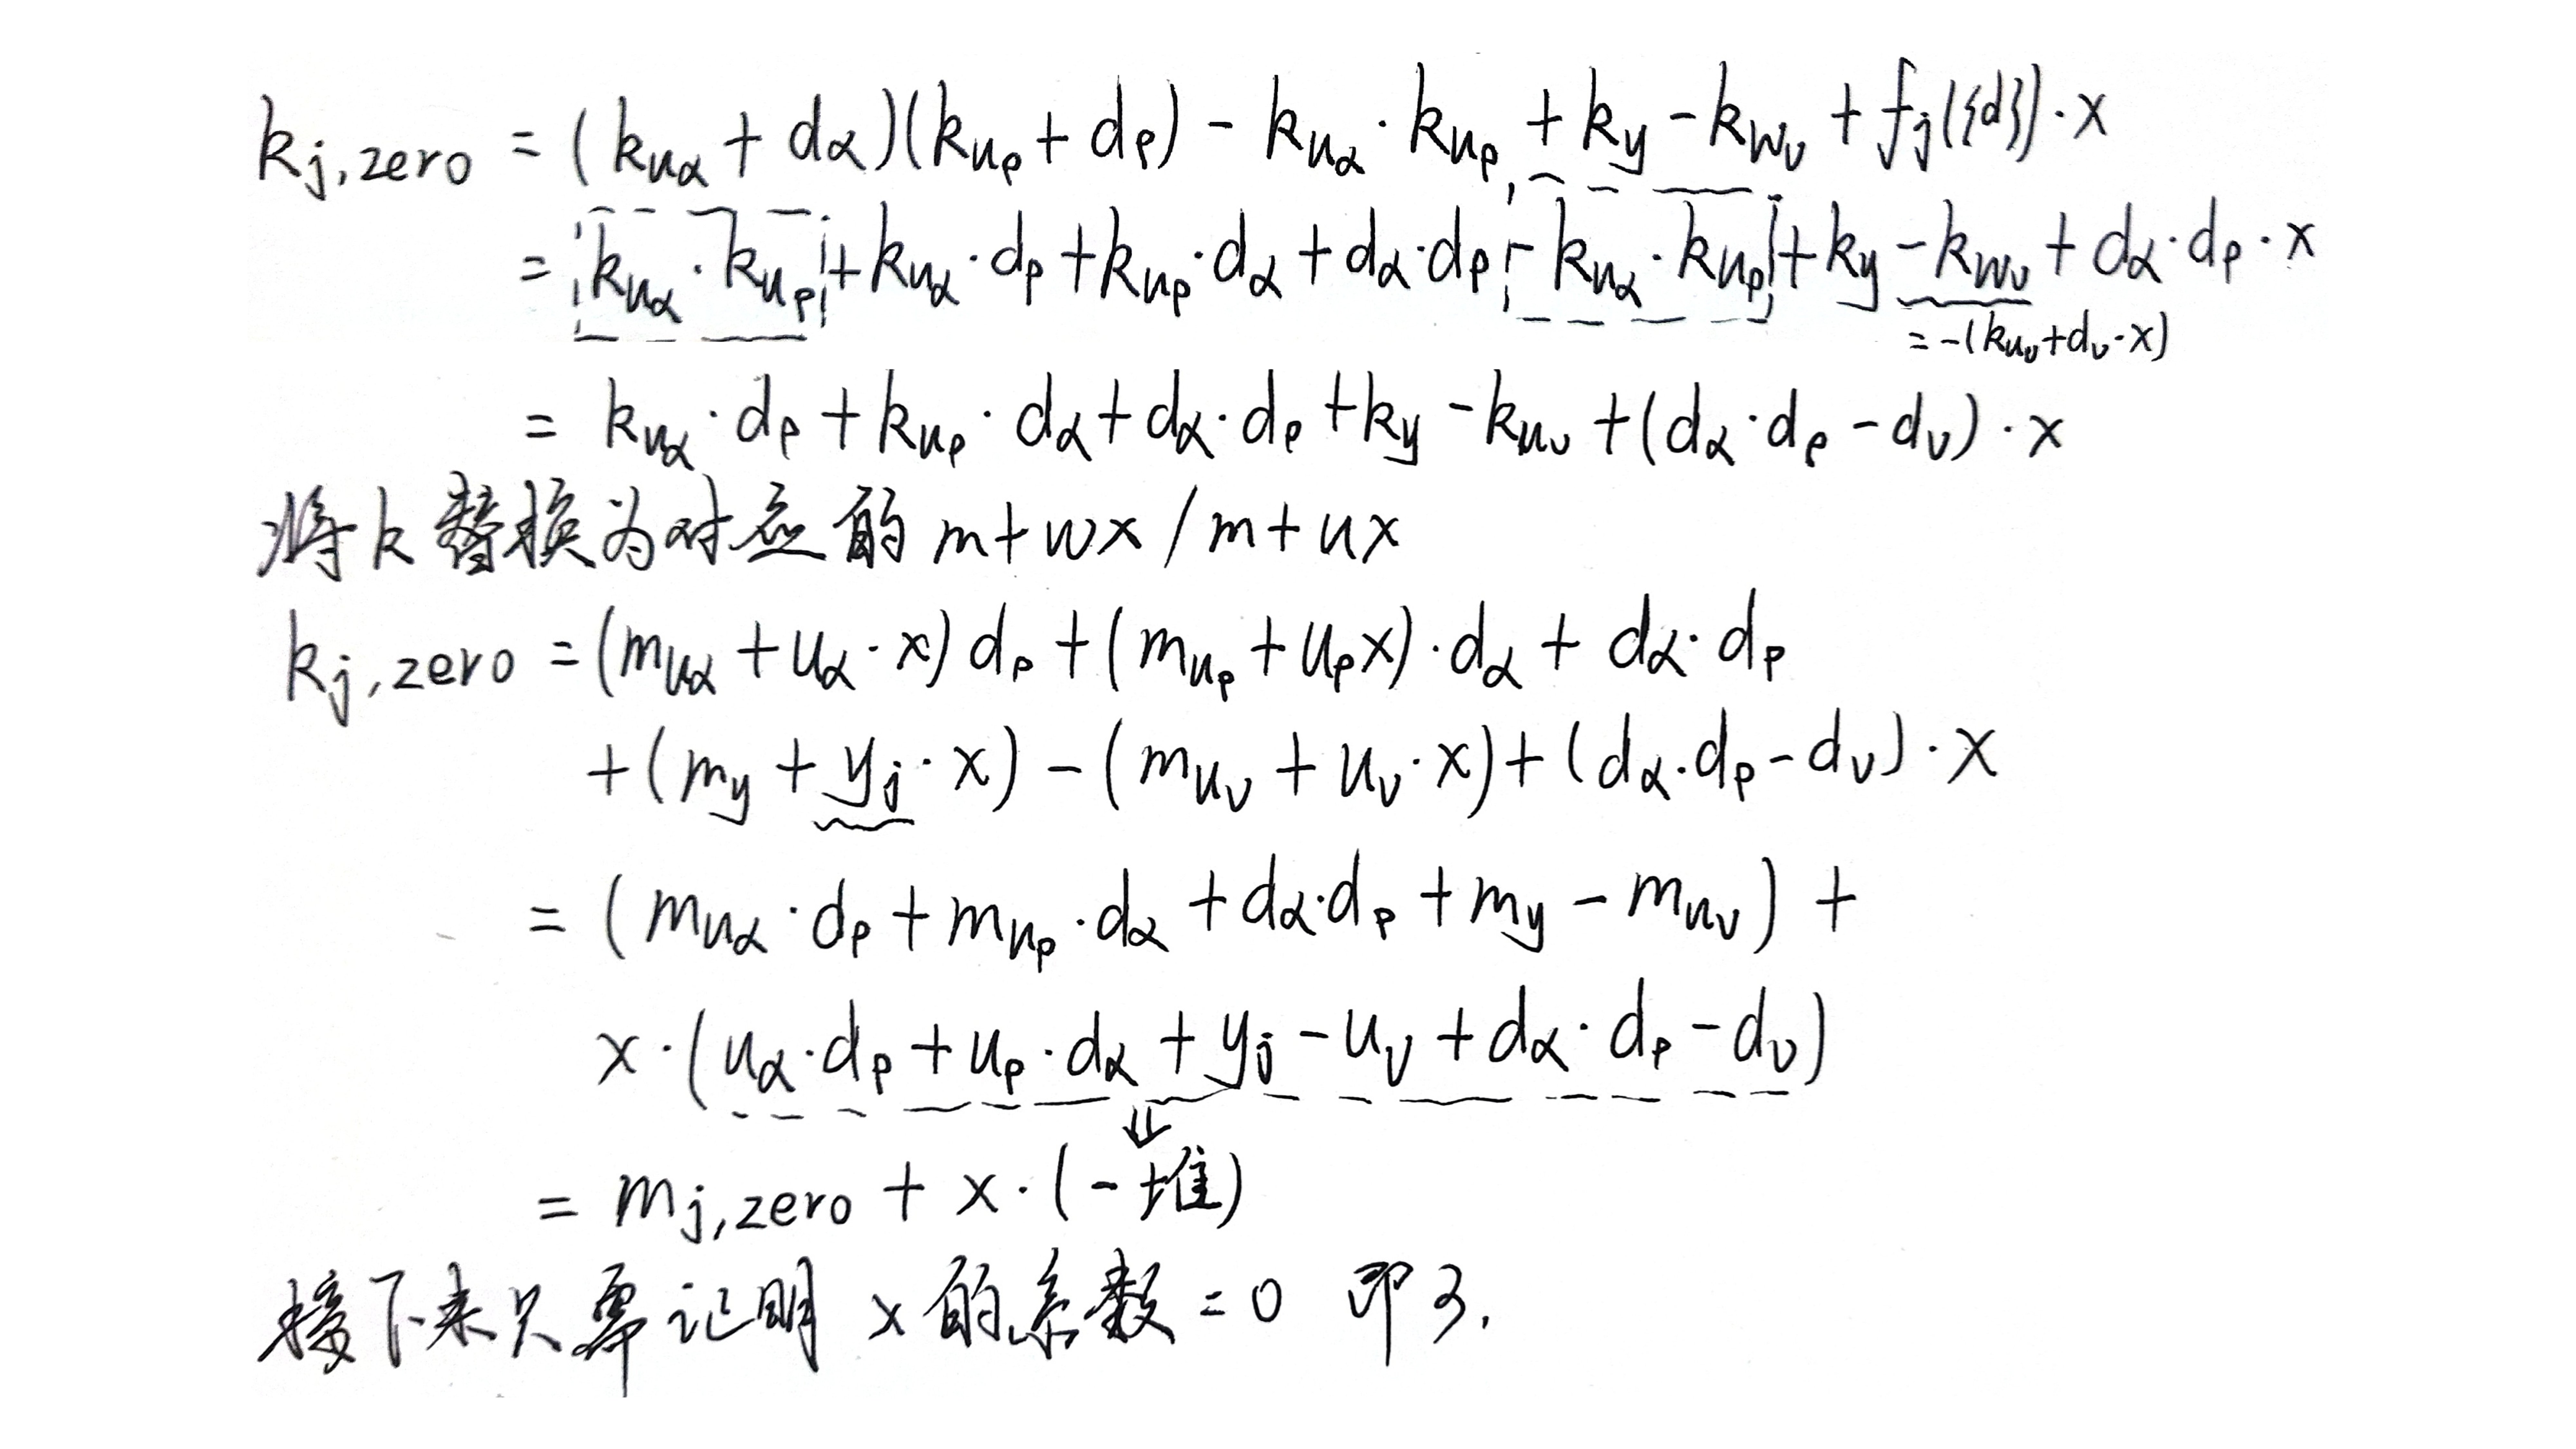 k_{j,zero} = (k_{uα} + dα)(k_{uβ} + dβ) - k_{uα} · k_{uβ} + k_y - k_{wν} + f_j({d}) · x
= k_{uα} · k_{uβ} + k_{uα} · dβ + k_{uβ} · dα + dα · dβ - k_{uα} · k_{uβ} + k_y - k_{wν} + dα · dβ · x
= -(k_{uν} + d_ν · x)
= k_{uα} · dβ + k_{uβ} · dα + dα · dβ + k_y - k_{uν} + (dα · dβ - d_ν) · x
将k替换为对应的 m+wx / m+ux
k_{j,zero} = (m_{uα} + uα · x) dβ + (m_{uβ} + uβ x) · dα + dα · dβ
+ (m_y + y_j · x) - (m_{uν} + u_ν · x) + (dα · dβ - d_ν) · x
= (m_{uα} · dβ + m_{uβ} · dα + dα · dβ + m_y - m_{uν}) +
x · (uα · dβ + uβ · dα + y_j - u_ν + dα · dβ - d_ν)
⇓
= m_{j,zero} + x · (一堆)
接下来只要证明 x 的系数 = 0 即可.